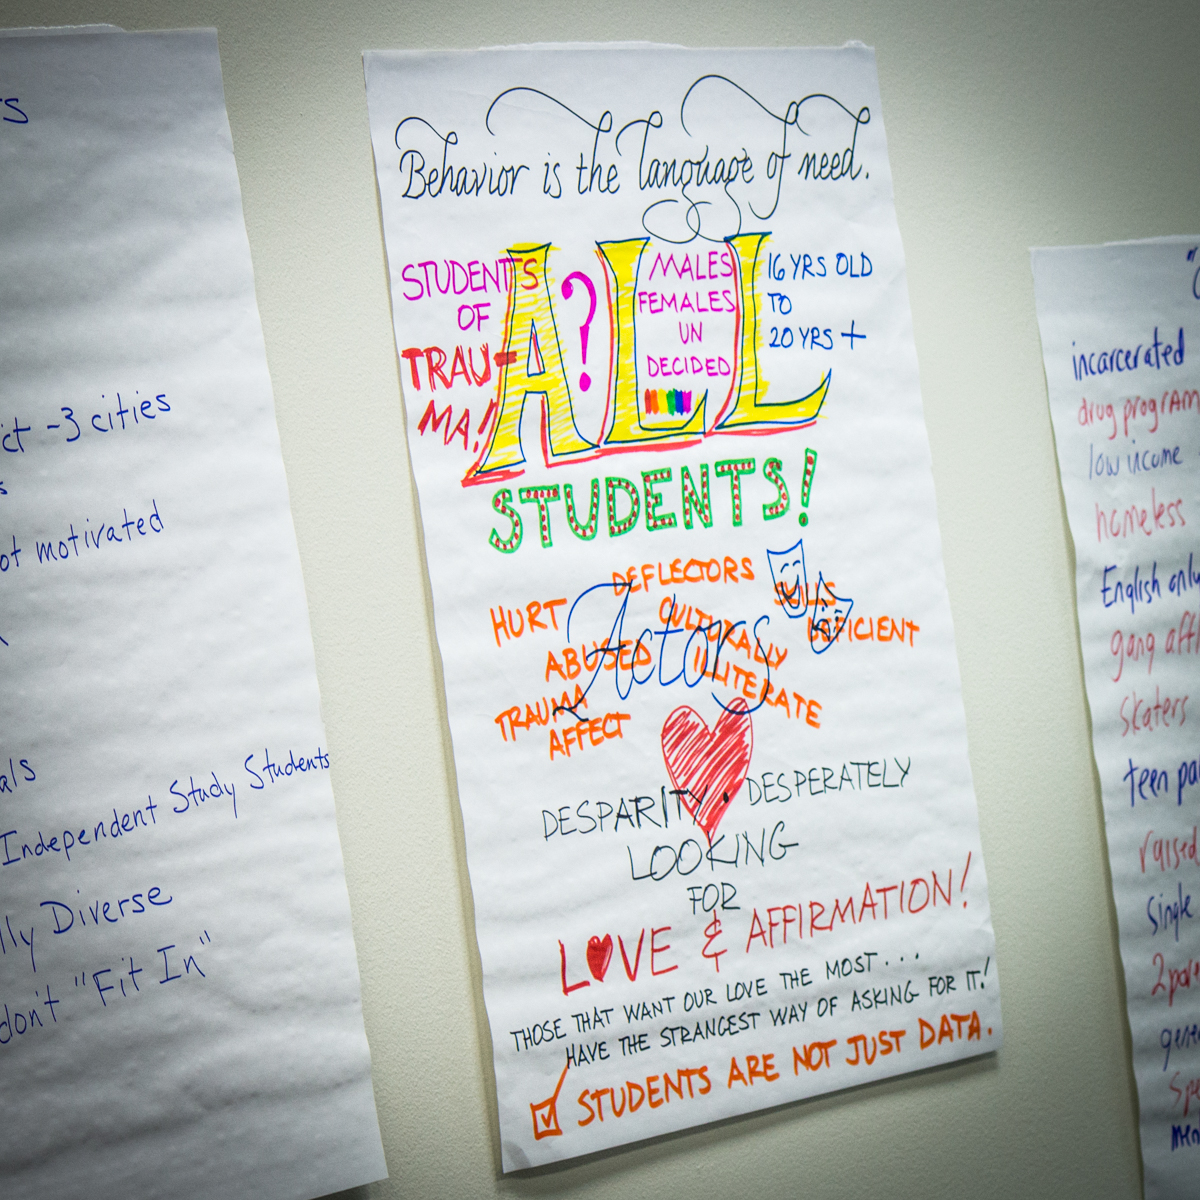 s
ct - 3 cities
s
ot motivated
als
Independent Study Students
lly Diverse
don't "Fit In"
Behavior is the language of need.
STUDENTS
OF
TRAU-
MA!
ALL
?
MALES
FEMALES
UN
DECIDED
16 YRS OLD
TO
20 YRS +
STUDENTS!
DEFLECTORS
HURT
Actors
CULTURALLY
ILLITERATE
SKILLS
DEFICIENT
ABUSED
TRAUMA
AFFECT
DESPARITY • DESPERATELY
LOOKING
FOR
LOVE & AFFIRMATION!
THOSE THAT WANT OUR LOVE THE MOST...
HAVE THE STRANGEST WAY OF ASKING FOR IT!
STUDENTS ARE NOT JUST DATA.
incarcerated
drug program
low income
homeless
English only
gang affi
skaters
teen pa
raised
single
2 par
gene
Spe
men